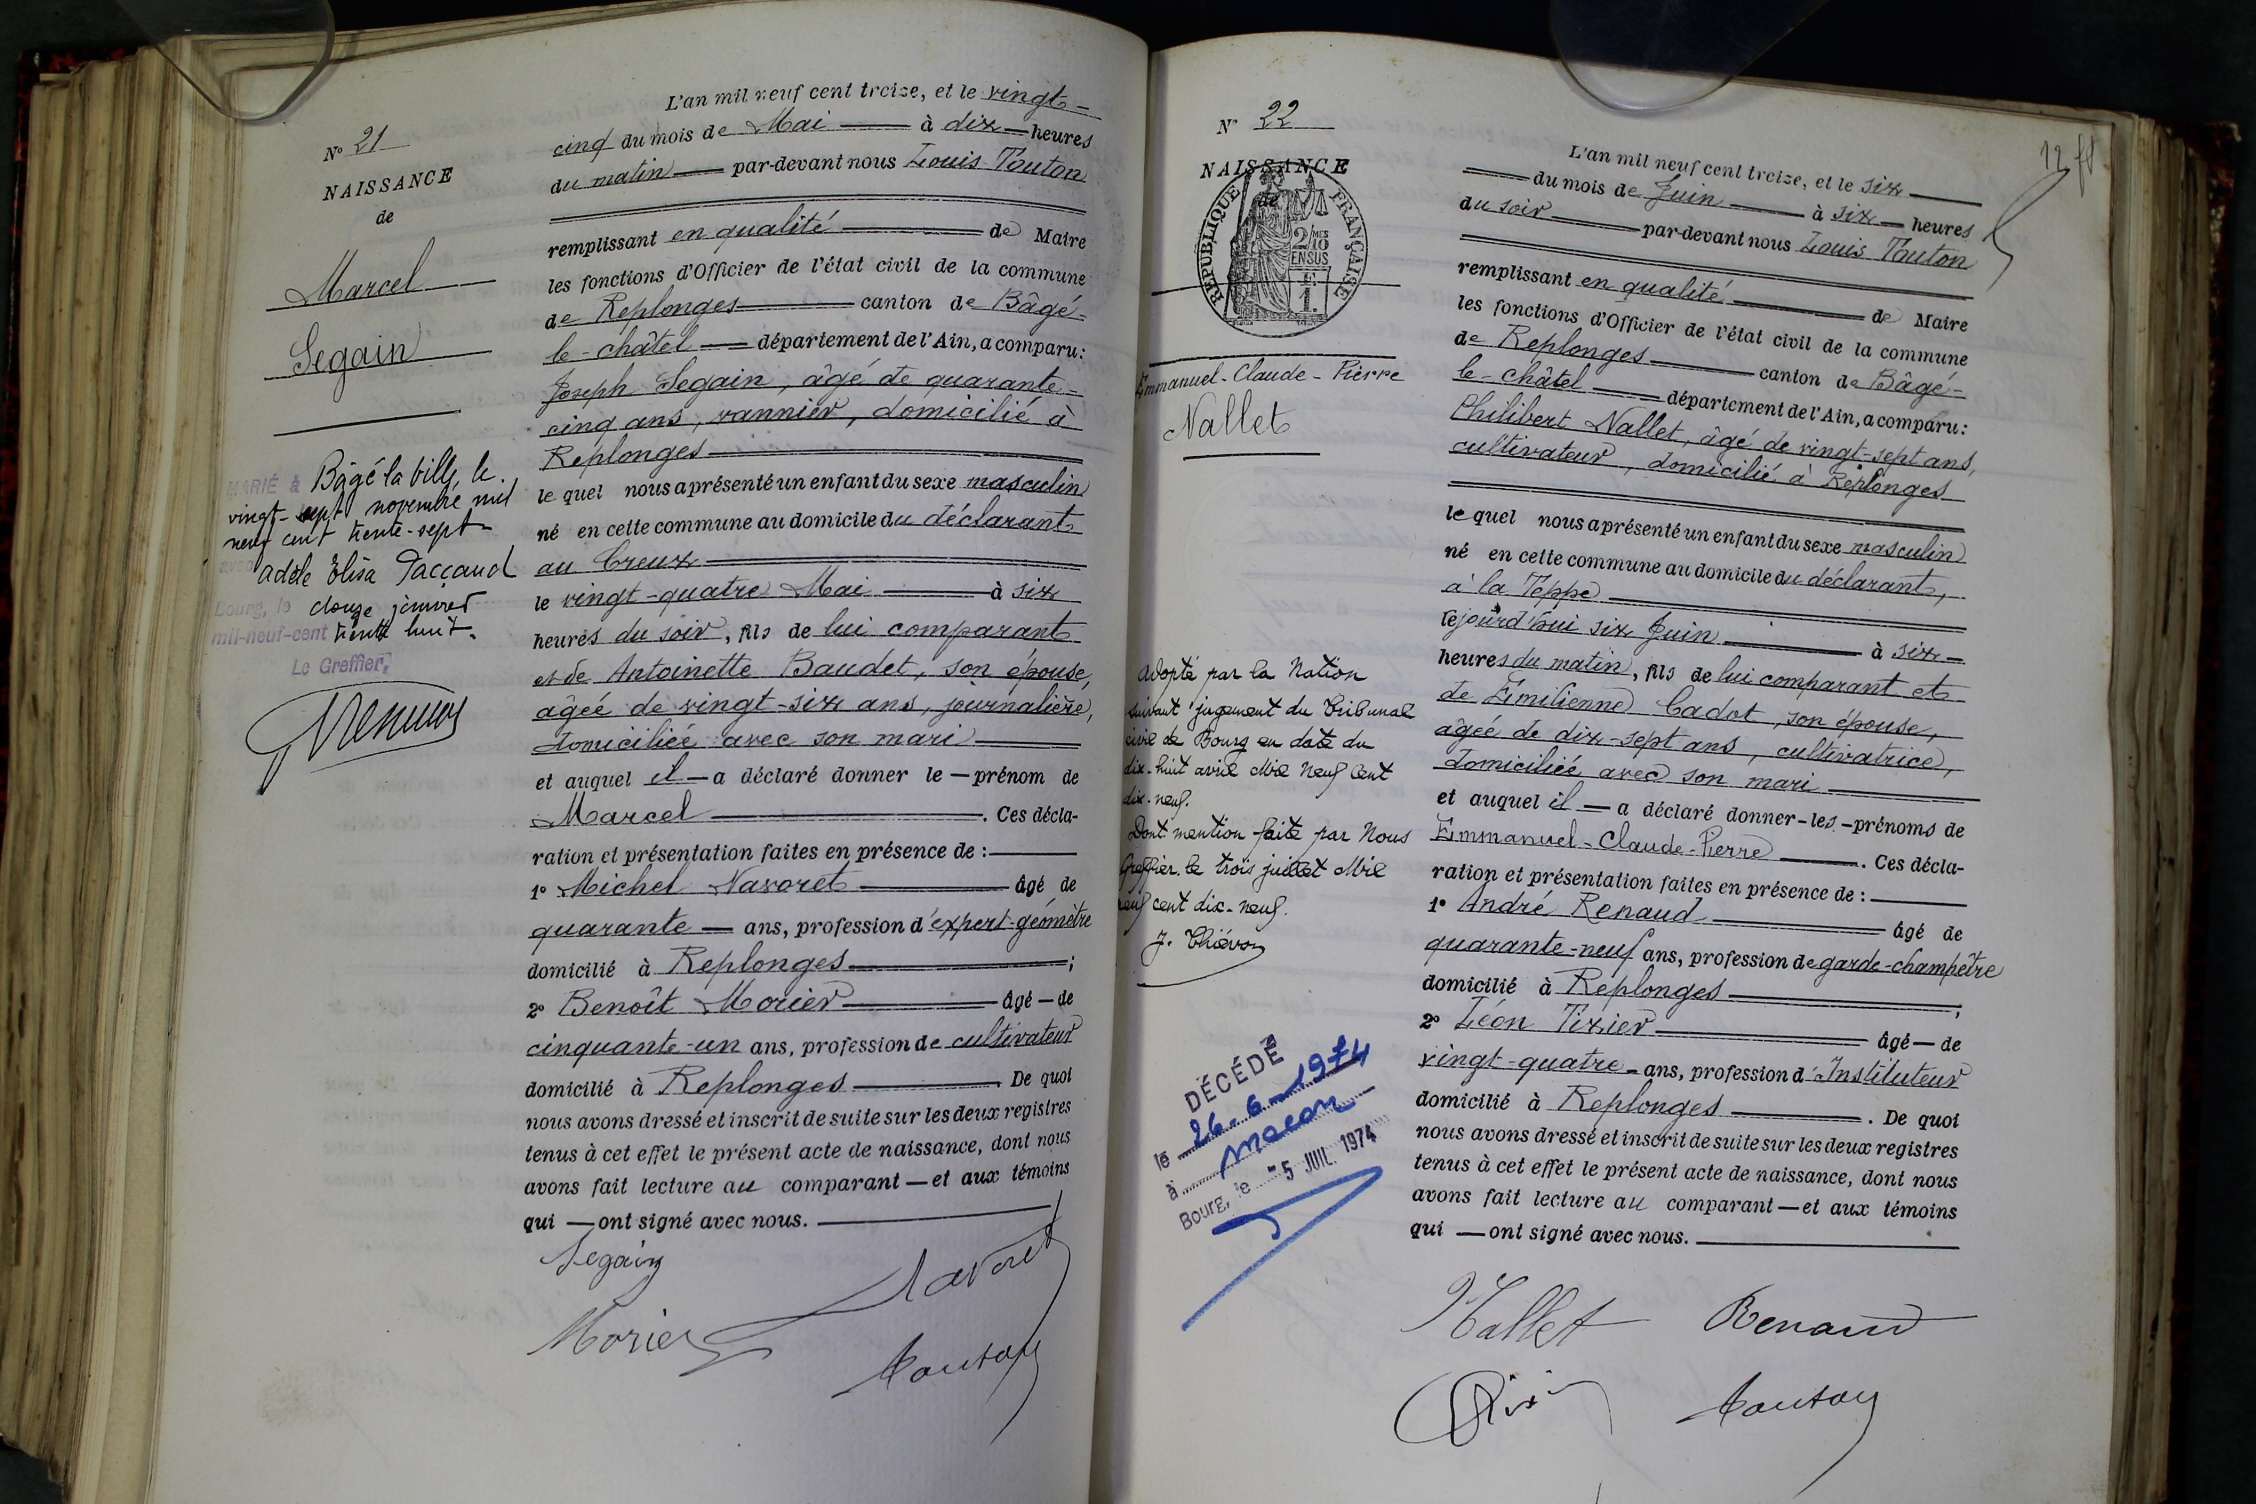 N° 21
NAISSANCE
de
Marcel
Segain
MARIÉ à Bâgé la Ville, le
vingt-sept novembre mil
neuf cent trente-sept
avec
Adèle Elisa Paccaud
Bourg, le douze janvier
mil-neuf-cent trente huit.
Le Greffier,
L'an mil neuf cent treize, et le vingt-
cinq du mois de Mai à dix heures
du matin par-devant nous Louis Touton
remplissant en qualité de Maire
les fonctions d'Officier de l'état civil de la commune
de Replonges canton de Bâgé-
le-châtel département de l'Ain, a comparu:
Joseph Segain, âgé de quarante-
cinq ans, vannier, domicilié à
Replonges
le quel nous a présenté un enfant du sexe masculin
né en cette commune au domicile du déclarant
au Creux
le vingt-quatre Mai à six
heures du soir, fils de lui comparant
et de Antoinette Baudet, son épouse,
âgée de vingt-six ans, journalière,
domiciliée avec son mari
et auquel il a déclaré donner le prénom de
Marcel. Ces décla-
ration et présentation faites en présence de :
1° Michel Navoret âgé de
quarante ans, profession d'expert-géomètre
domicilié à Replonges ;
2° Benoît Morier âgé de
cinquante-un ans, profession de cultivateur
domicilié à Replonges. De quoi
nous avons dressé et inscrit de suite sur les deux registres
tenus à cet effet le présent acte de naissance, dont nous
avons fait lecture au comparant et aux témoins
qui ont signé avec nous.
Segain
Navoret
Morier
Touton
12 f8
N° 22
NAISSANCE
de
REPUBLIQUE FRANÇAISE
2/10 MES
EN SUS
1F.
Emmanuel-Claude-Pierre
Nallet
Adopté par la Nation
suivant jugement du Tribunal
civil de Bourg en date du
dix-huit avril Mil Neuf Cent
dix-neuf.
Dont mention faite par Nous
Greffier le trois juillet Mil
neuf cent dix-neuf.
DÉCÉDÉ
le 26.6.1974
à Macon
Bourg, le -5 JUIL. 1974
L'an mil neuf cent treize, et le six
du mois de Juin à six heures
du soir par-devant nous Louis Touton
remplissant en qualité de Maire
les fonctions d'Officier de l'état civil de la commune
de Replonges canton de Bâgé-
le-châtel département de l'Ain, a comparu:
Philibert Nallet, âgé de vingt-sept ans,
cultivateur, domicilié à Replonges
le quel nous a présenté un enfant du sexe masculin
né en cette commune au domicile du déclarant,
à la Teppe
lejourd'hui six Juin à six
heures du matin, fils de lui comparant et
de Emilienne Cadot, son épouse,
âgée de dix-sept ans, cultivatrice,
domiciliée avec son mari
et auquel il a déclaré donner les prénoms de
Emmanuel-Claude-Pierre. Ces décla-
ration et présentation faites en présence de :
1° André Renaud âgé de
quarante-neuf ans, profession de garde-champêtre
domicilié à Replonges ;
2° Léon Tixier âgé de
vingt-quatre ans, profession d'Instituteur
domicilié à Replonges. De quoi
nous avons dressé et inscrit de suite sur les deux registres
tenus à cet effet le présent acte de naissance, dont nous
avons fait lecture au comparant et aux témoins
qui ont signé avec nous.
Nallet Renaud
Touton